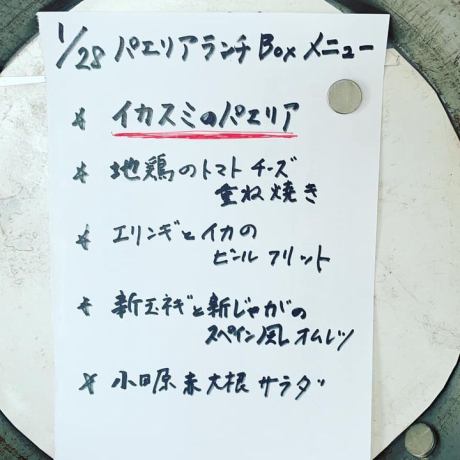 1/28 パエリアランチBoxメニュー
* イカスミのパエリア
* 地鶏のトマトチーズ
重ね焼き
* エリンギとイカの
ビールフリット
* 新玉ネギと新じゃがの
スペイン風オムレツ
* 小田原赤大根サラダ